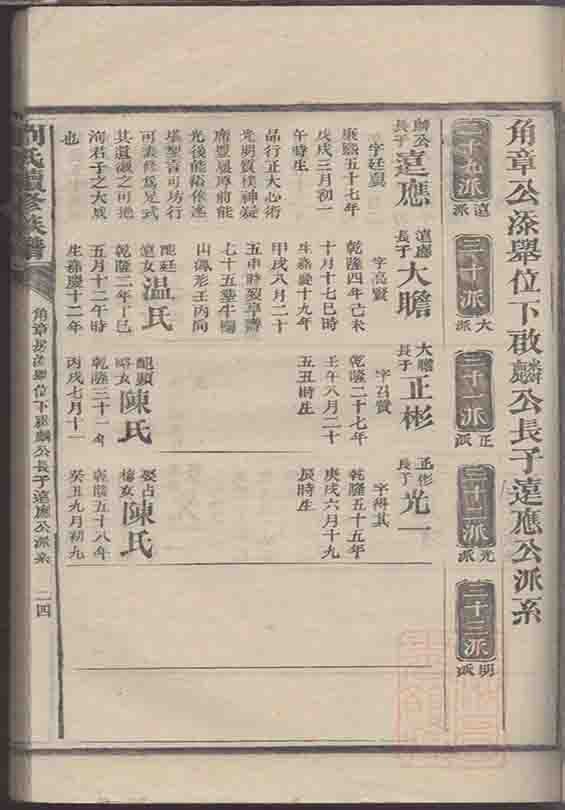 角章公添舉位下啟麟公長子遠應公派系
二十九派
遠派
三十派
大派
三十一派
正派
三十二派
光派
三十三派
明派
麟公長子
遠應
字廷顯
康熙五十七年
戊戌三月初一
午時生
品行正大心術
光明質樸神凝
席豐履厚前能
光後能裕作述
堪型言可坊行
可表修爲足式
其遺澤之可挹
洵君子之大成
也
遠應長子
大瞻
字高賢
乾隆四年己未
十月十七巳時
生嘉慶十九年
甲戌八月二十
五申時殁享壽
七十五塟牛
山佩形壬丙向
配廷遠女
温氏
乾隆二年丁巳
五月十二午時
生嘉慶十二年
大瞻長子
正彬
字召賢
乾隆二十七年
壬午八月二十
五丑時生
配顯略女
陳氏
乾隆三十一年
丙戌七月十一
正彬長子
光一
字得其
乾隆五十五年
庚戌六月十九
辰時生
娶占女
陳氏
乾隆五十八年
癸丑九月初九
氏續修族譜
角章房添舉位下啟麟公長子遠應公派系
二四